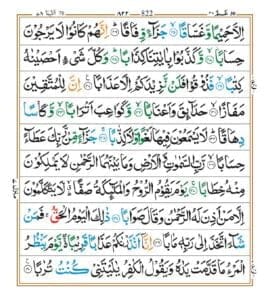 اِلَّا حَمِيْمًا وَّغَسَّاقًا ۙ‏﴿۲۵﴾ جَزَآءً وِّفَاقًا ؕ‏﴿۲۶﴾ اِنَّهُمْ كَانُوْا لَا يَرْجُوْنَ
حِسَابًا ۙ‏﴿۲۷﴾ وَّكَذَّبُوْا بِاٰيٰتِنَا كِذَّابًا ؕ‏﴿۲۸﴾ وَكُلَّ شَىْءٍ اَحْصَيْنٰهُ
كِتٰبًا ۙ‏﴿۲۹﴾ فَذُوْقُوْا فَلَنْ نَّزِيْدَكُمْ اِلَّا عَذَابًا ‏﴿۳۰﴾ اِنَّ لِلْمُتَّقِيْنَ
مَفَازًا ۙ‏﴿۳۱﴾ حَدَآئِقَ وَاَعْنَابًا ۙ‏﴿۳۲﴾ وَّكَوَاعِبَ اَتْرَابًا ۙ‏﴿۳۳﴾ وَّكَاْسًا
دِهَاقًا ؕ‏﴿۳۴﴾ لَا يَسْمَعُوْنَ فِيْهَا لَغْوًا وَّلَا كِذّٰبًا ۚ‏﴿۳۵﴾ جَزَآءً مِّنْ رَّبِّكَ عَطَآءً
حِسَابًا ۙ‏﴿۳۶﴾ رَّبِّ السَّمٰوٰتِ وَالْاَرْضِ وَمَا بَيْنَهُمَا الرَّحْمٰنِ لَا يَمْلِكُوْنَ
مِنْهُ خِطَابًا ۚ‏﴿۳۷﴾ يَوْمَ يَقُوْمُ الرُّوْحُ وَالْمَلٰٓئِكَةُ صَفًّا ؕۙ لَّا يَتَكَلَّمُوْنَ
اِلَّا مَنْ اَذِنَ لَهُ الرَّحْمٰنُ وَقَالَ صَوَابًا ‏﴿۳۸﴾ ذٰلِكَ الْيَوْمُ الْحَقُّ ۚ فَمَنْ
شَآءَ اتَّخَذَ اِلٰى رَبِّهٖ مَاٰبًا ‏﴿۳۹﴾ اِنَّاۤ اَنْذَرْنٰكُمْ عَذَابًا قَرِيْبًا ۖۚ يَّوْمَ يَنْظُرُ
الْمَرْءُ مَا قَدَّمَتْ يَدٰهُ وَيَقُوْلُ الْكٰفِرُ يٰلَيْتَنِىْ كُنْتُ تُرٰبًا ‏﴿۴۰﴾